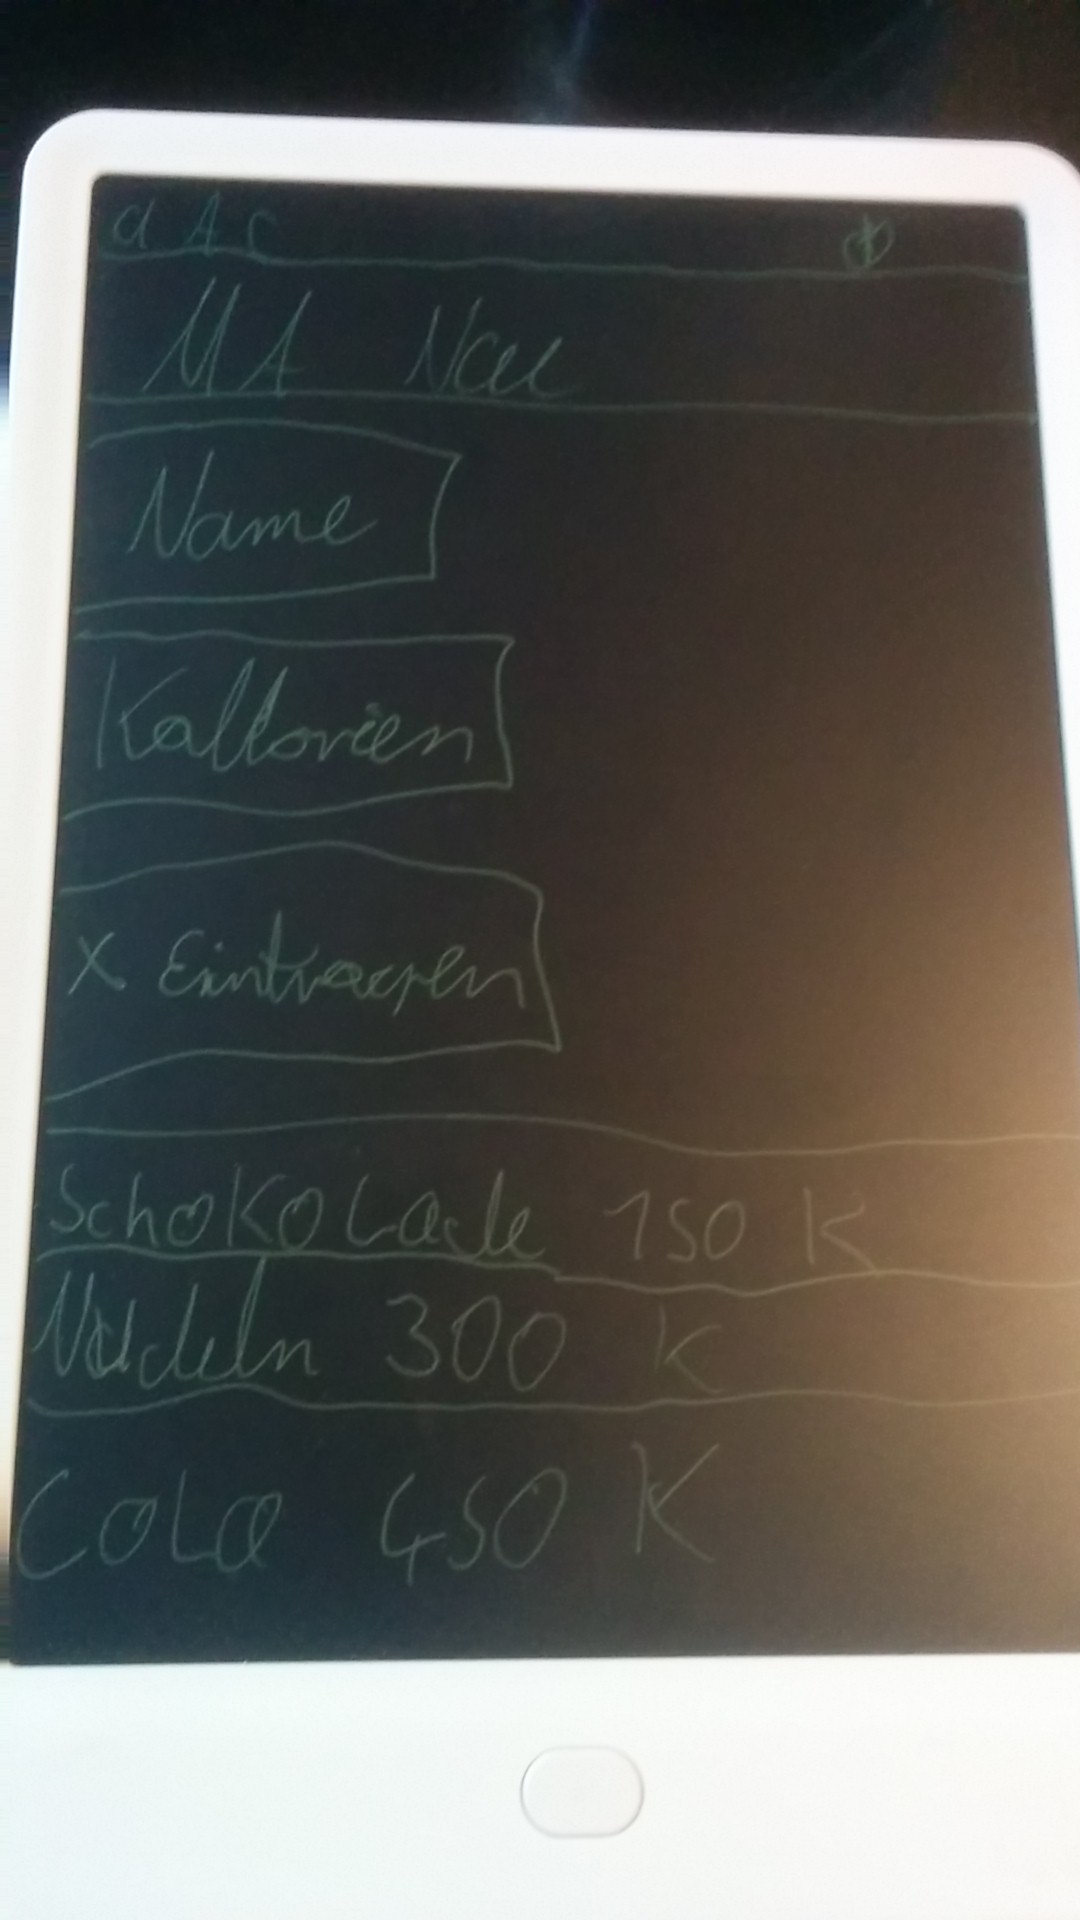 d A C
MA Neu
Name
Kallorien
X Eintragen
Schokolade 150 K
Nudeln 300 K
Cola 450 K